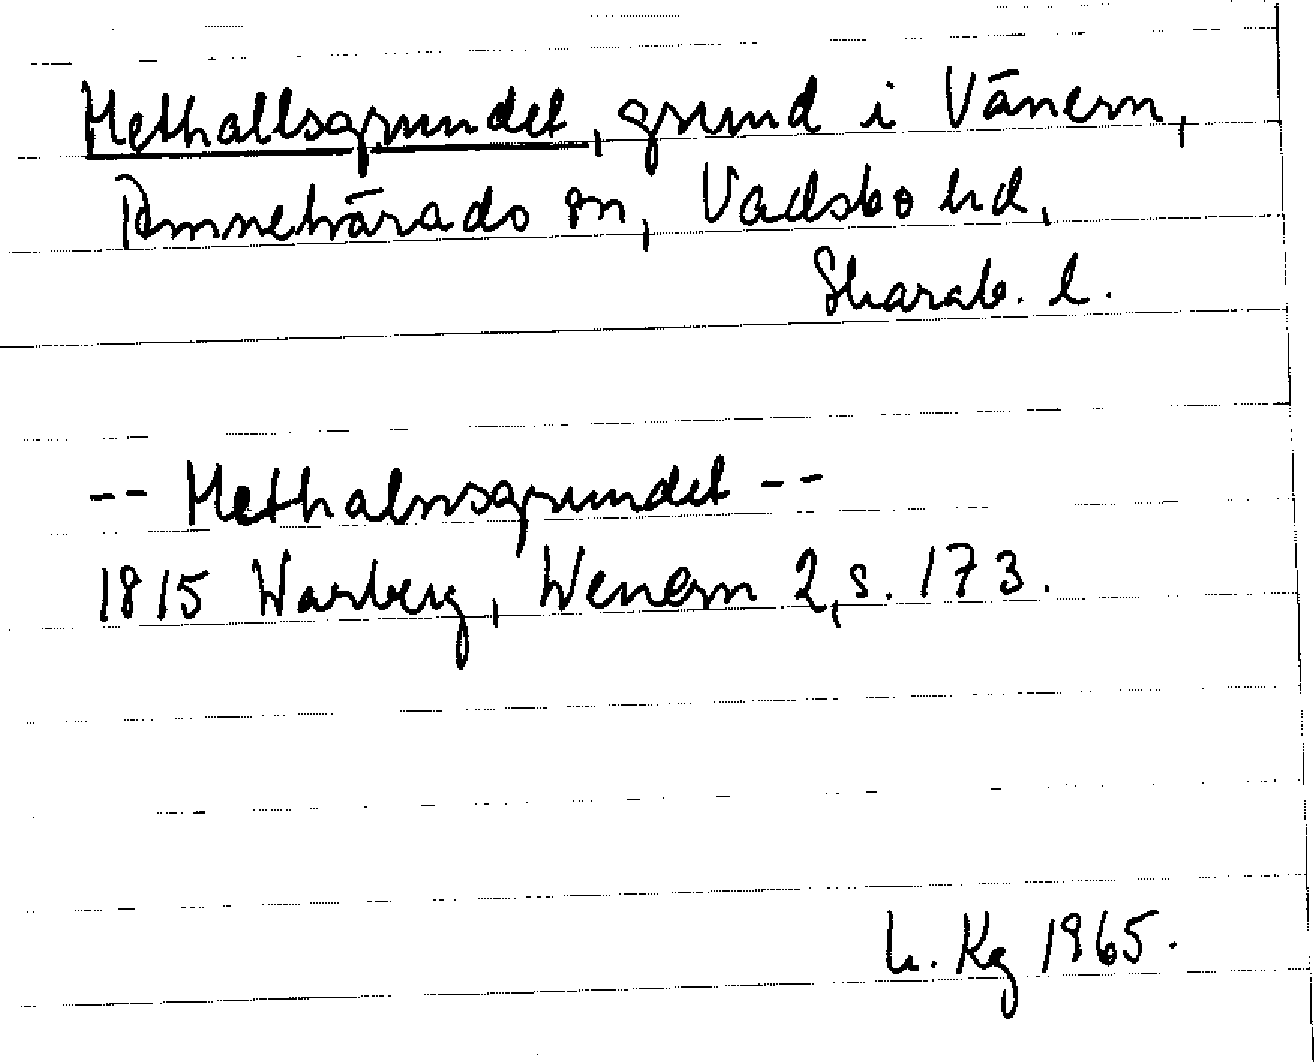 Methallsgrundet, grund i Vänern,
Amnehärads sn, Vadsbo hd,
Skarab. l.
-- Methalmsgrundet --
1815 Warberg, Wenern 2, s. 173.
L. Kg 1965.